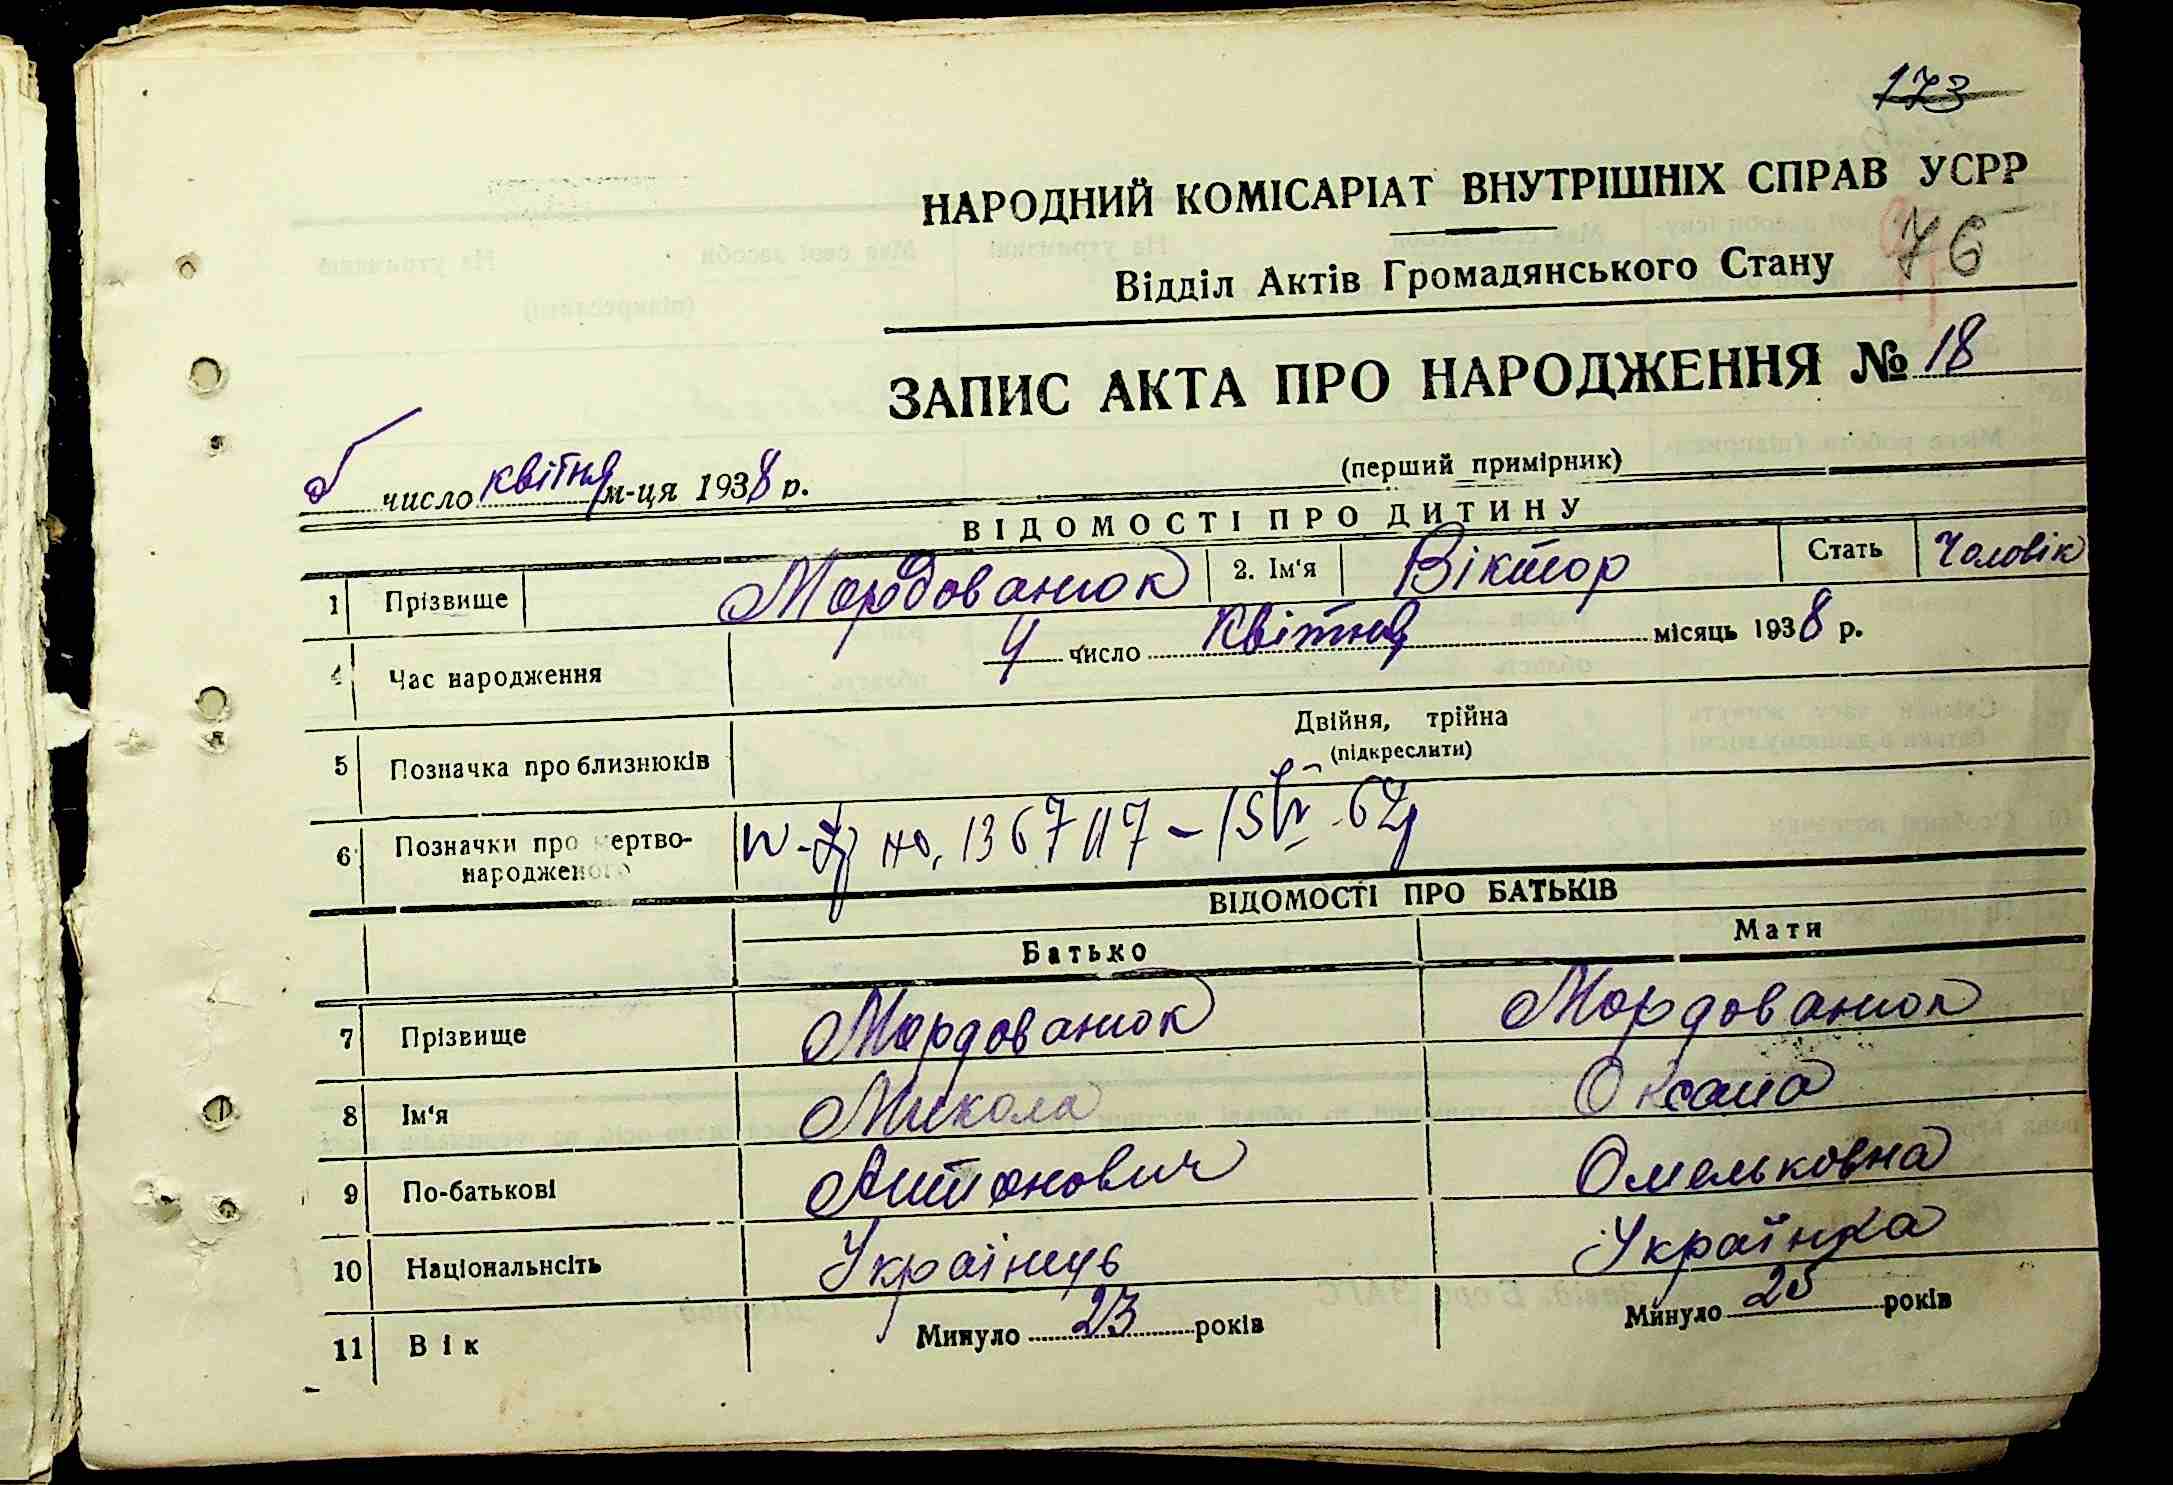 173
НАРОДНИЙ КОМІСАРІАТ ВНУТРІШНІХ СПРАВ УСРР
76
Відділ Актів Громадянського Стану
ЗАПИС АКТА ПРО НАРОДЖЕННЯ № 18
(перший примірник)
число квітня м-ця 1938 р.
ВІДОМОСТІ ПРО ДИТИНУ
1 Прізвище Мордованюк 2. Ім'я Віктор Стать Чоловік
4 Час народження 4 число Квітня місяць 1938 р.
5 Позначка про близнюків Двійня, трійна
(підкреслити)
6 Позначки про мертво-
народженого
ВІДОМОСТІ ПРО БАТЬКІВ
Батько Мати
7 Прізвище Мордованюк Мордованюк
8 Ім'я Микола Оксана
9 По-батькові Антонович Омельковна
10 Національнсіть Українець Українка
11 Вік Минуло 23 років Минуло років